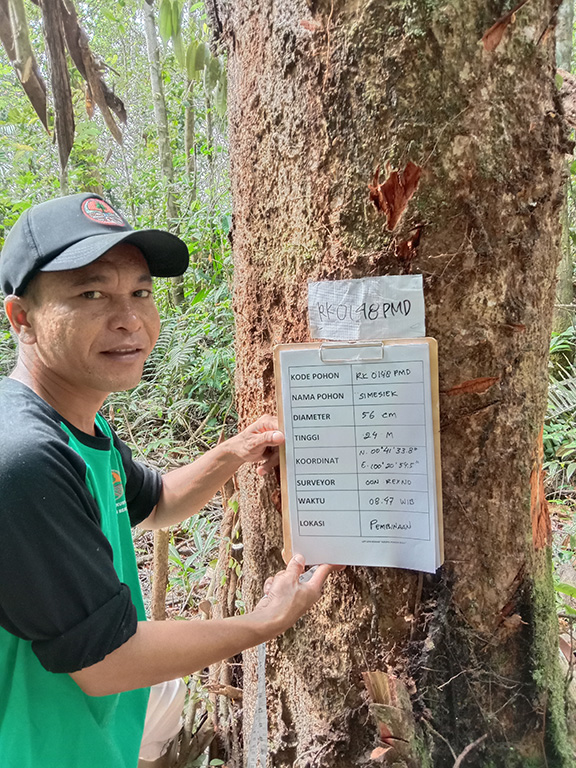 RK0148PMD
KODE POHON RK 0148 PMD
NAMA POHON SIMESIEK
DIAMETER 56 cm
TINGGI 24 M
KOORDINAT N. 00° 41' 33.8"
E: 100° 20' 59.5"
SURVEYOR OON REXNO
WAKTU 08.47 WIB
LOKASI PEMBINAAN